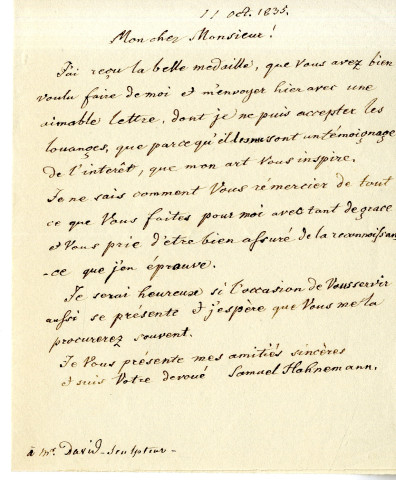 11 oct. 1835.
Mon cher Monsieur!
J'ai reçu la belle medaille, que vous avez bien
voulu faire de moi et m'envoyer hier avec une
aimable lettre, dont je ne puis accepter les
louanges, que parce qu'elles me sont un témoignage
de l'interêt, que mon art vous inspire.
Je ne sais comment Vous rémercier de tout
ce que Vous faites pour moi avec tant de grace
et Vous prie d'être bien assuré de la reconnoissan-
-ce que j'en éprauve.
Je serai heureux si l'occasion de Vous servir
aussi se présente et j'espère que Vous me la
procurerez souvent.
Je Vous présente mes amitiés sincères
et suis Votre devoué Samuel Hahnemann.
à Mr. David - sculpteur -